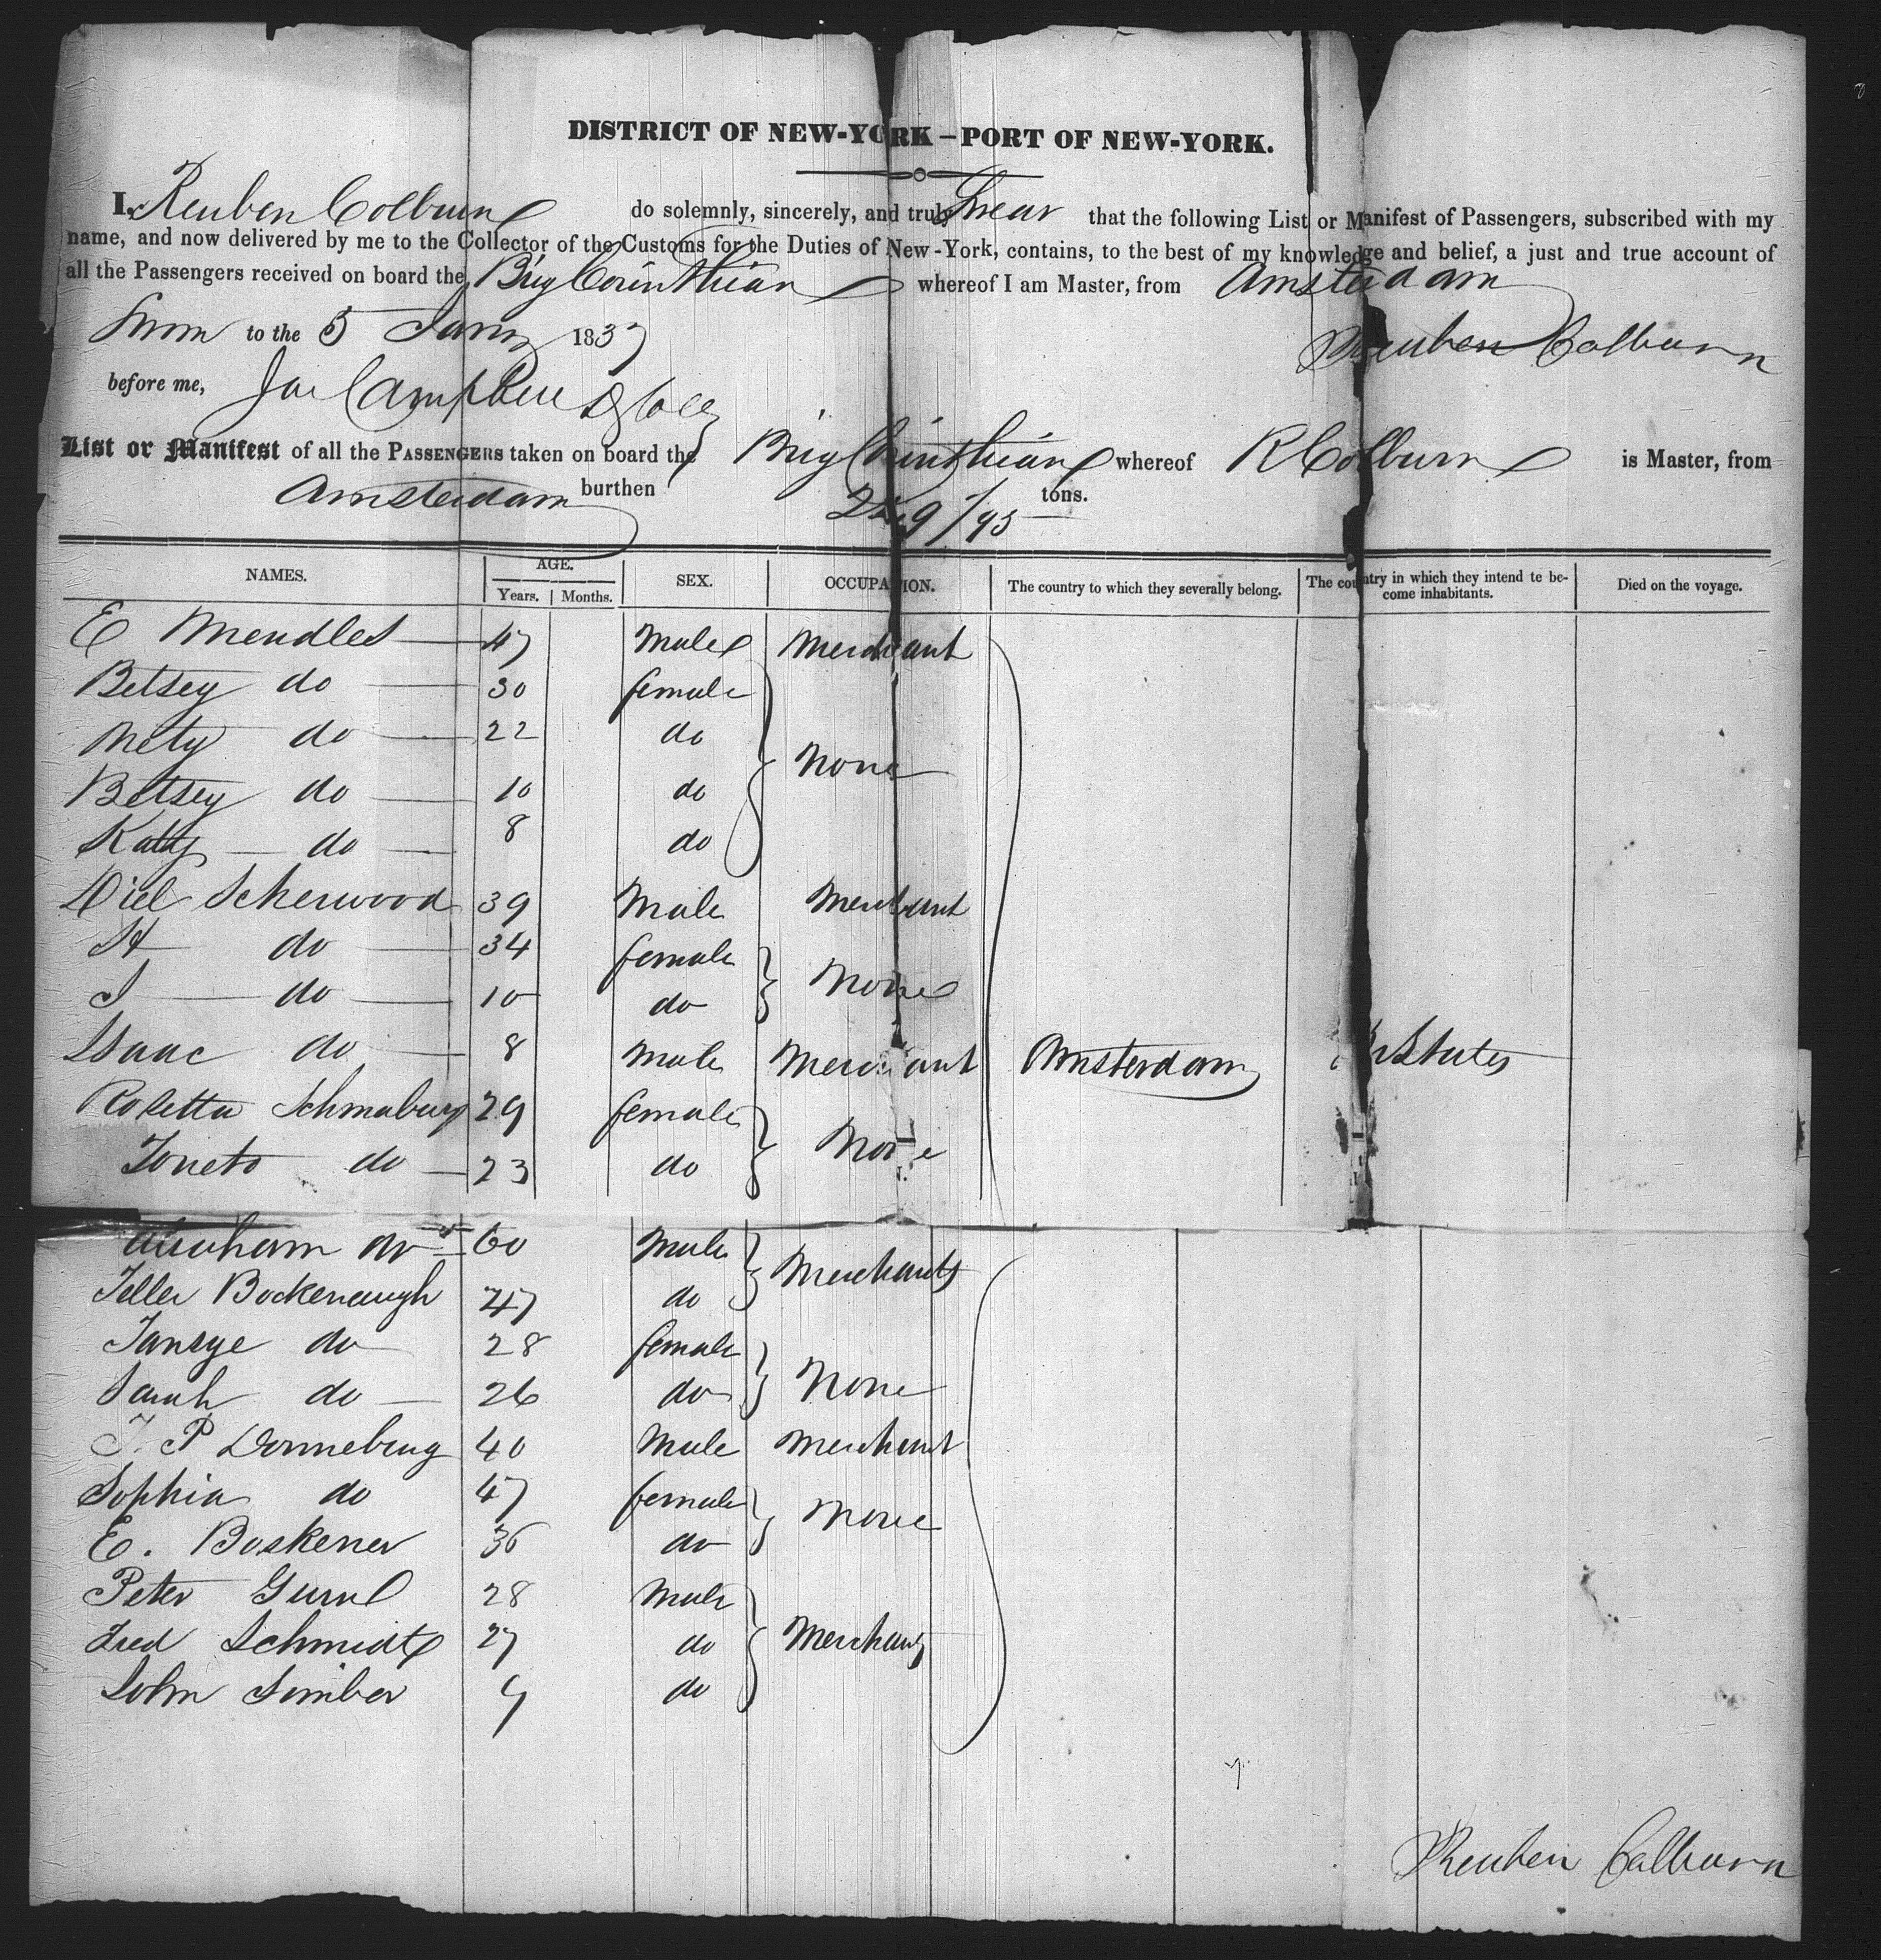 DISTRICT OF NEW-YORK – PORT OF NEW-YORK.
I, Reuben Colburn do solemnly, sincerely, and truly Swear that the following List or Manifest of Passengers, subscribed with my
name, and now delivered by me to the Collector of the Customs for the Duties of New-York, contains, to the best of my knowledge and belief, a just and true account of
all the Passengers received on board the Brig Corinthian whereof I am Master, from Amsterdam
to the 5 1837 Reuben Colburn
before me, Campbell
List or Manifest of all the PASSENGERS taken on board the Brig Corinthian whereof R Colburn is Master, from
Amsterdam burthen tons.
NAMES. AGE. SEX. OCCUPATION. The country to which they severally belong. The country in which they intend te become inhabitants. Died on the voyage.
Years. Months.
E Mendles 47 Male Merchant
Betsey do 30 female
Mety do 22 do None
Betsey do 10 do
Katy do 8 do
Scherwood 39 Male Merchant
do 34 female
do 10 do None
Isaac do 8 Male Merchant Amsterdam States
Rosetta 29 female
do 23 do None
do 60 Male Merchants
Bockenaugh 47 do
do 28 female
Sarah do 26 do None
P Donneberg 40 Male Merchant
Sophia do 47 female None
E. Boskener 36 do
Peter 28 Male
Fred Schmidt 27 do
John Simber 9 do
Reuben Colburn